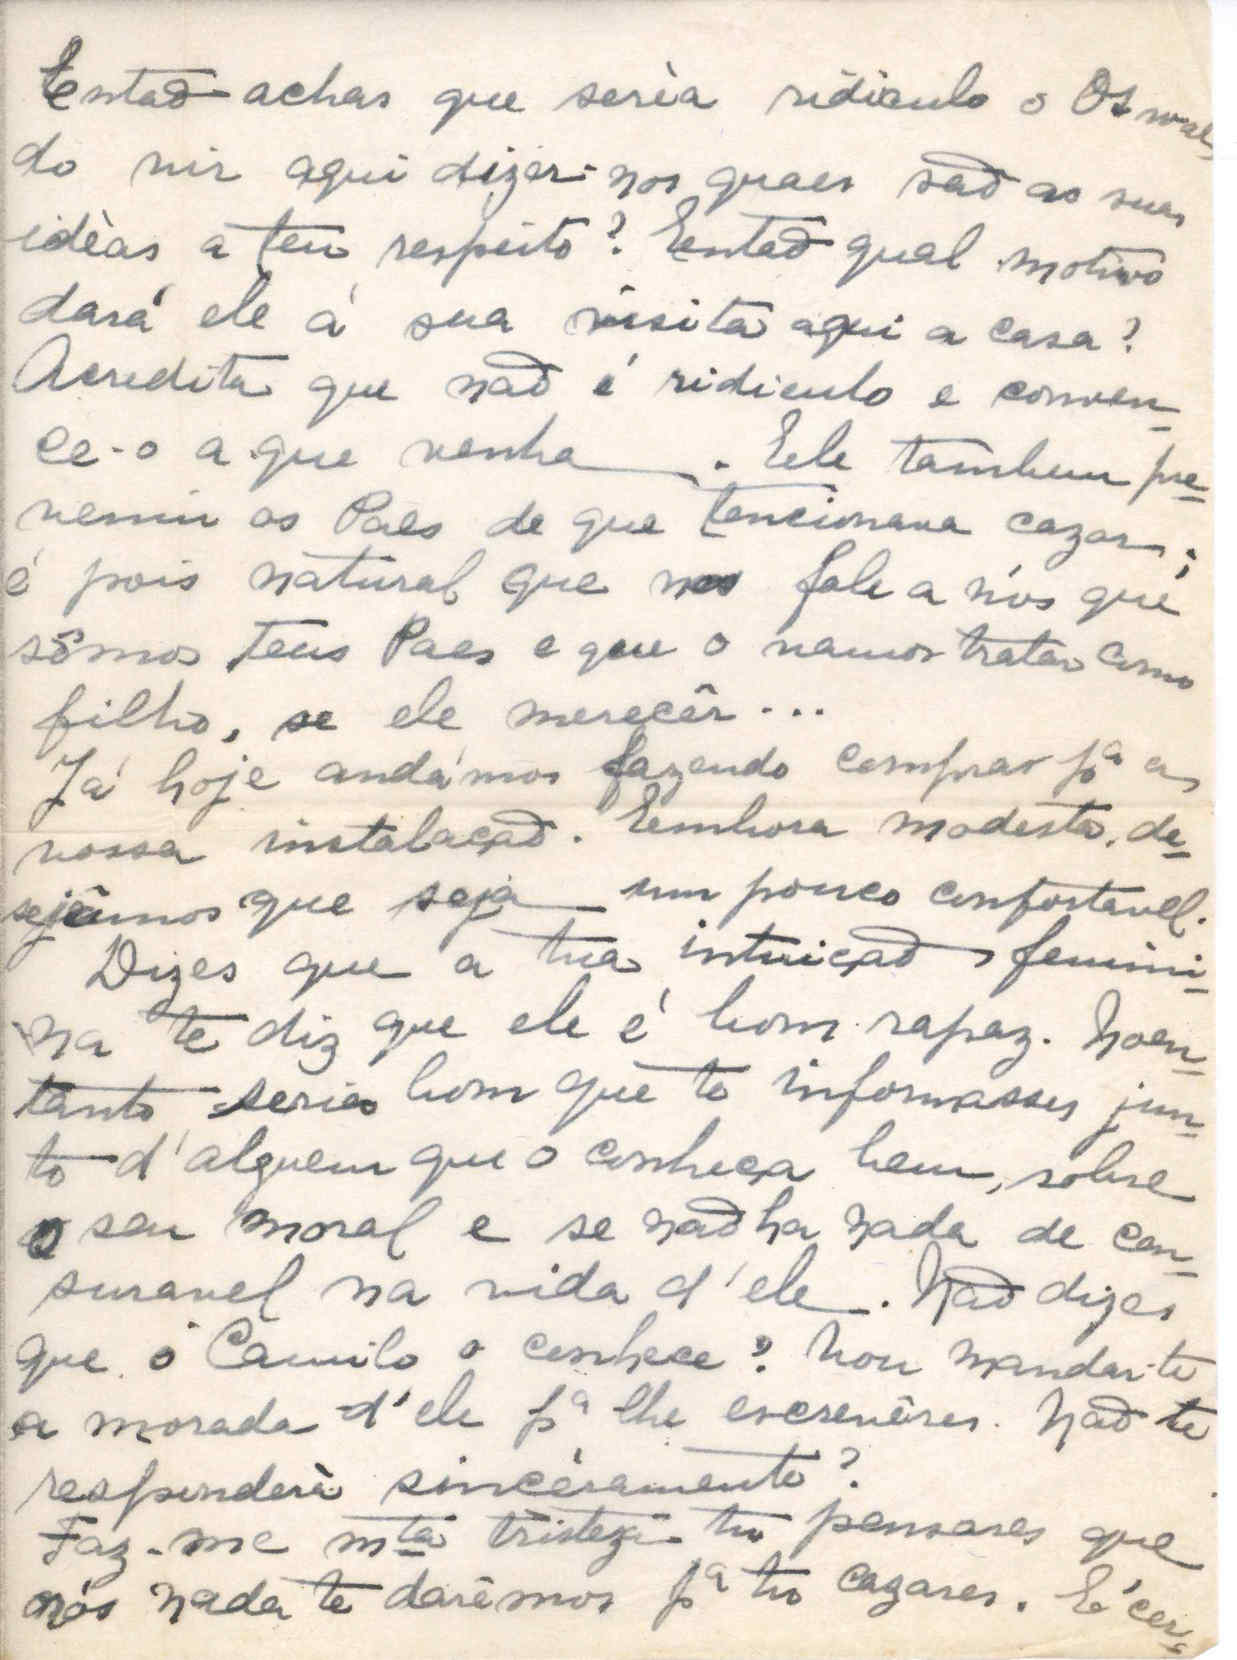 Entaõ achas que serìa ridiculo o Oswal
do vir aqui dizer-nos quaes saõ as suas
idèas a teu respeito? Entaõ qual motivo
dará ele á sua visita aqui a casa?
Acredita que naõ é ridiculo e conven-
ce-o a que venha. Ele tambem pre-
veniu os Paes de que tencionava cazar;
é pois natural que nos fale a nós que
sômos teus Paes e que o vamos tratar como
filho, se ele merecêr...
Já hoje andámos fazendo compras pª a
nossa instalaçaõ. Embora modesta, de-
sejâmos que seja um pouco confortavel.
Dizes que a tua intuiçaõ femini-
na te diz que ele é bom rapaz. Noen-
tanto seria bom que te informasses jun-
to d'alguem que o conheça bem, sobre
o seu moral e se naõ ha nada de cen-
suravel na vida d'ele. Naõ dizes
que o Camilo o conhece? Vou mandar-te
a morada d'ele pª lhe escrevêres. Naõ te
responderà sincèramente?
Faz-me mta tristeza tu pensares que
nós nada te darêmos pª tu cazares. É cer-